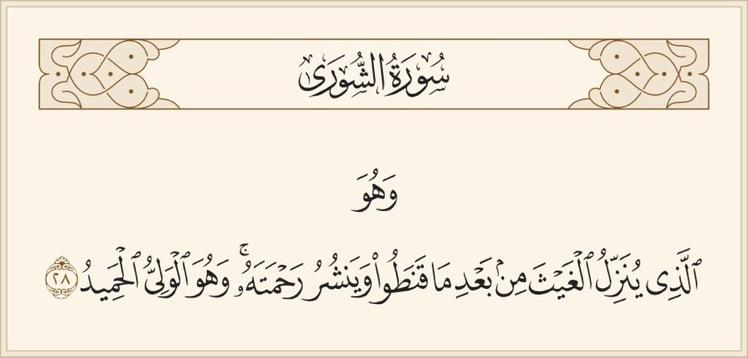 سُورَةُ الشُّورَىٰ
وَهُوَ
ٱلَّذِى يُنَزِّلُ ٱلْغَيْثَ مِنۢ بَعْدِ مَا قَنَطُوا۟ وَيَنشُرُ رَحْمَتَهُۥ ۚ وَهُوَ ٱلْوَلِىُّ ٱلْحَمِيدُ ٢٨